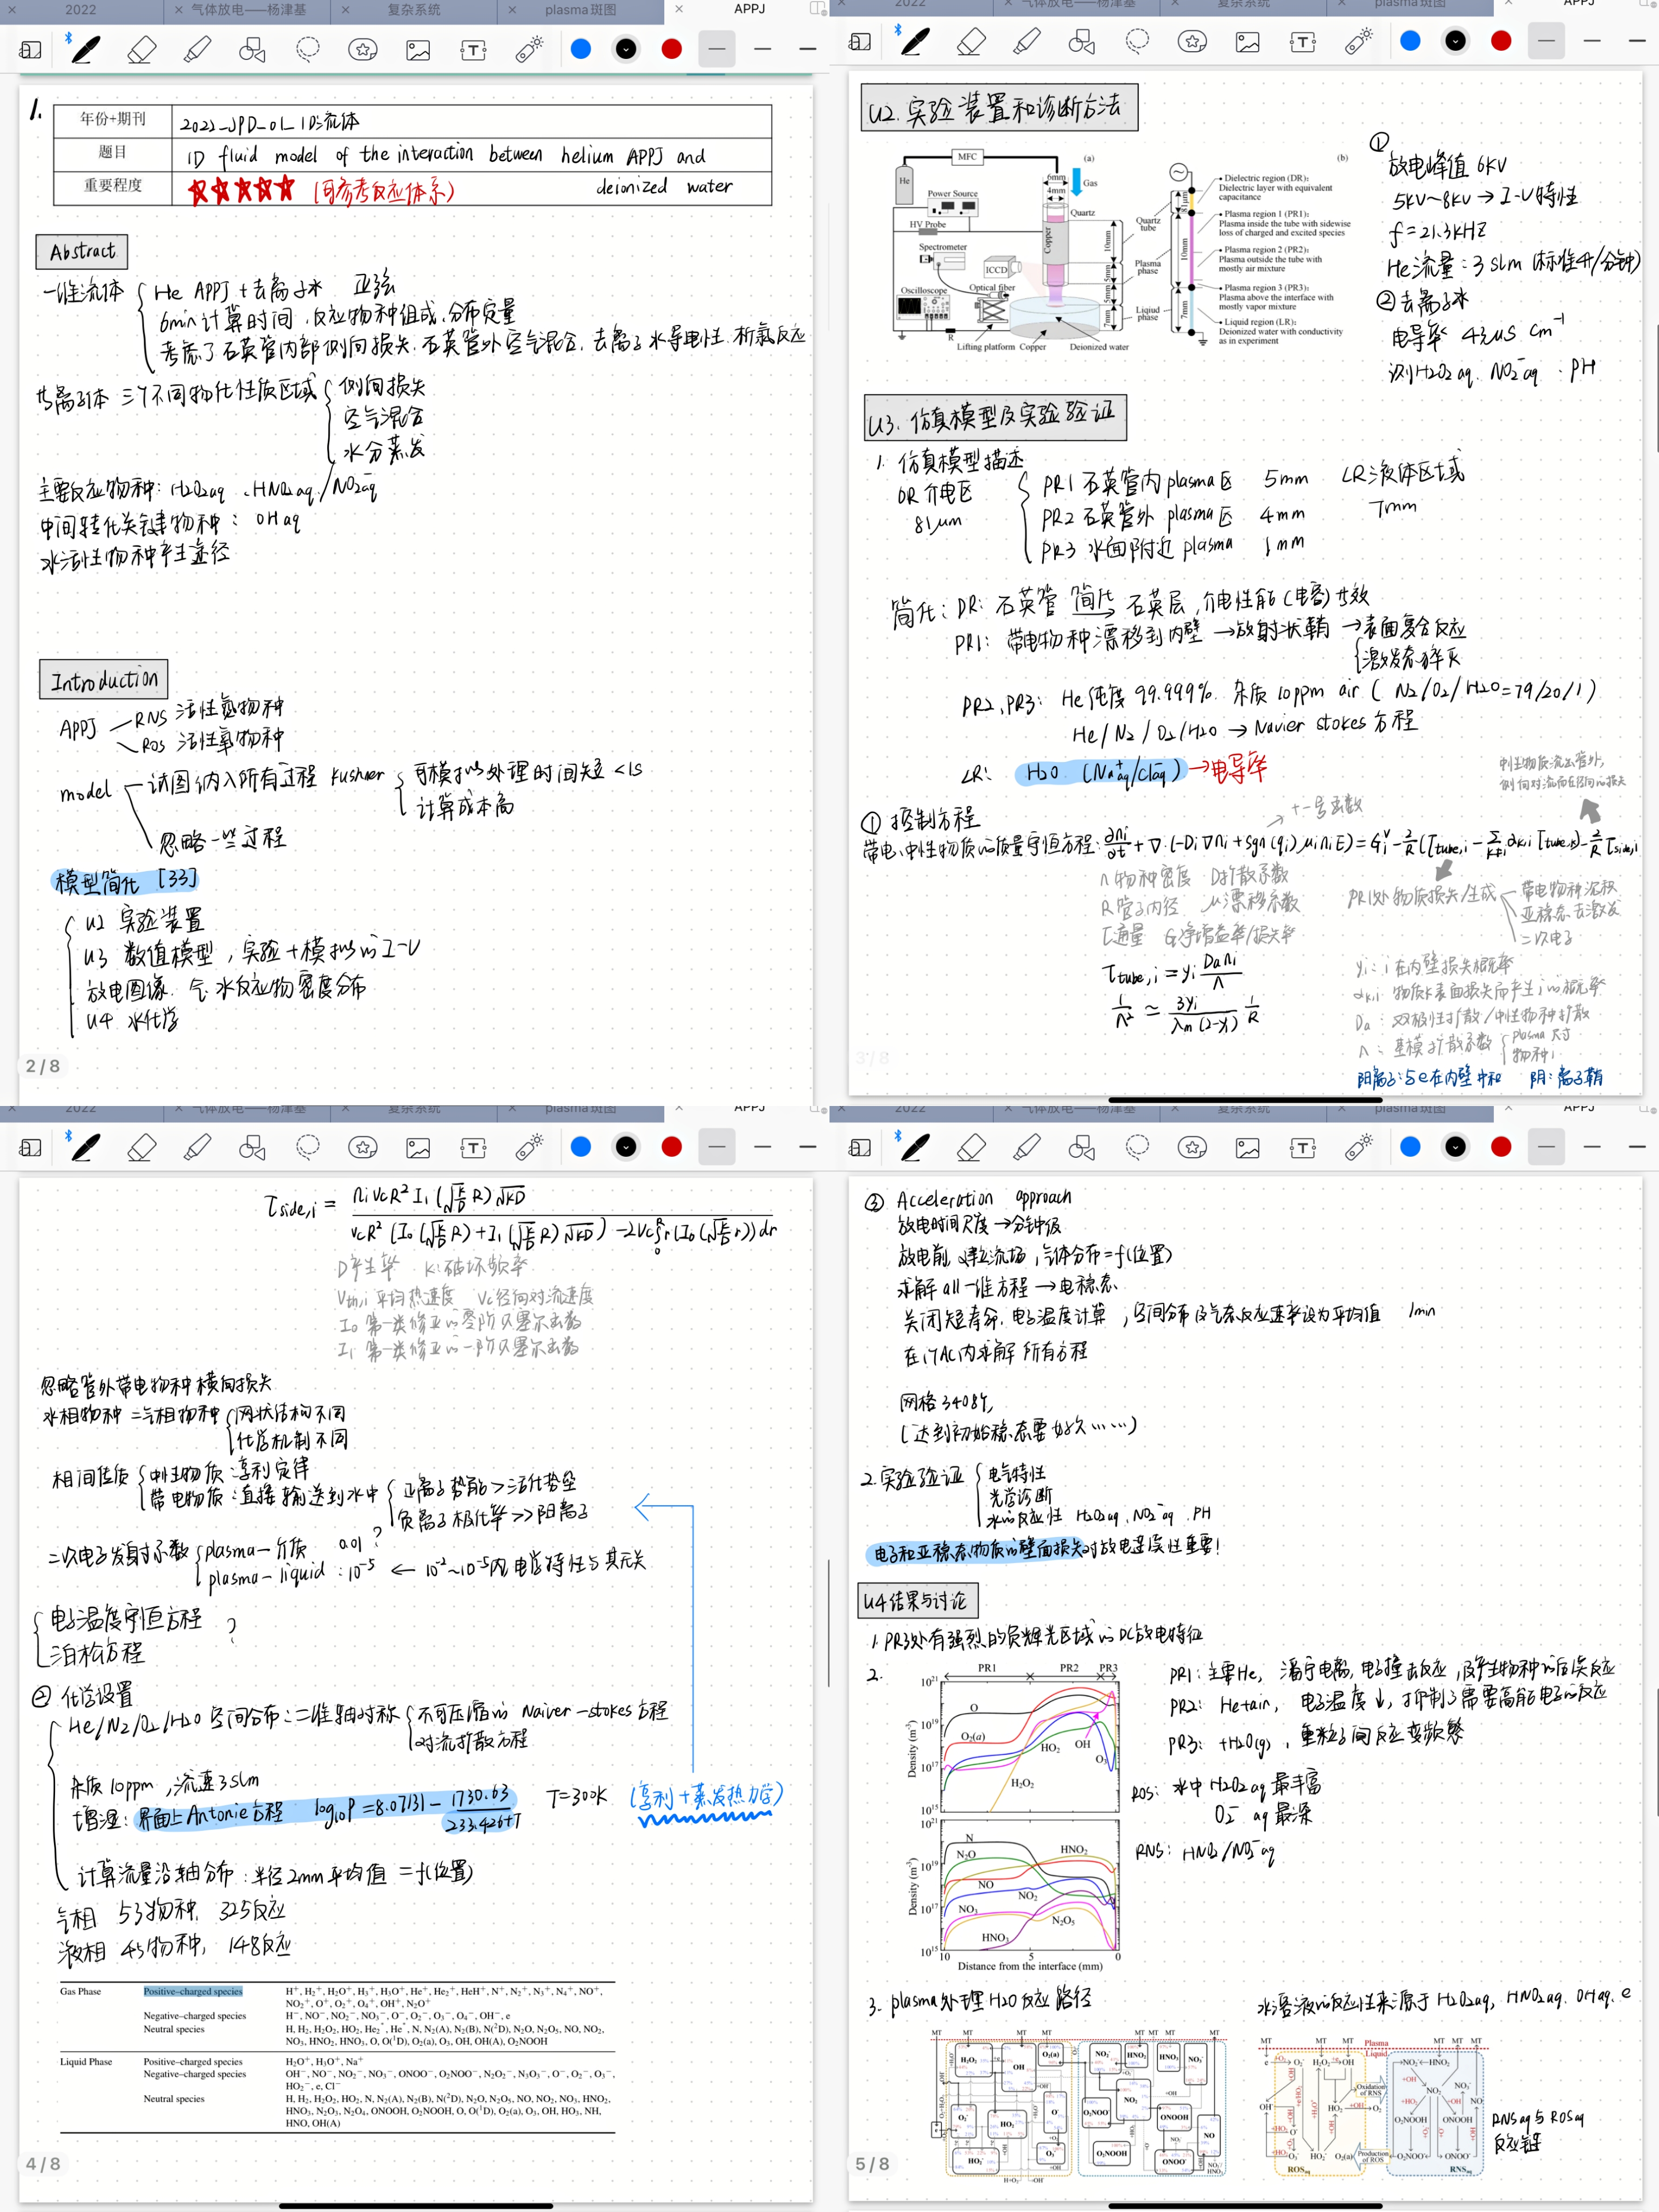 2022
气体放电——杨津基
复杂系统
plasma 斑图
APPJ
1.
年份+期刊 2022_JPD_01_1D流体
题目 1D fluid model of the interaction between helium APPJ and
deionized water
重要程度 (可参考反应体系)
Abstract
一维流体
He APPJ + 去离子水 正弦
6min计算时间, 反应物种组成、分布定量
考虑了石英管内部侧向损失、石英管外空气混合、去离子水导电性、析氢反应
等离子体 三个不同物化性质区域
侧向损失
空气混合
水分蒸发
主要反应物种: H2O2aq、HNO2aq/NO2⁻aq
中间转化关键物种: OHaq
水活性物种产生途径
Introduction
APPJ
RNS 活性氮物种
ROS 活性氧物种
model
试图纳入所有过程 Kushner
可模拟处理时间短 <1s
计算成本高
忽略一些过程
模型简化 [33]
U2 实验装置
U3 数值模型, 实验+模拟的I-V
放电图像、气、水反应物密度分布
U4 水化学
2/8
2022
气体放电——杨津基
复杂系统
plasma 斑图
APPJ
U2. 实验装置和诊断方法
MFC
(a)
He
Power Source
HV Probe
Spectrometer
Oscilloscope
ICCD
Optical fiber
R
Lifting platform
Copper
Deionized water
6mm
4mm
Gas
Quartz
Copper
10mm
5mm
5mm
7mm
Quartz tube
Plasma phase
Liquid phase
(b)
81μm
10mm
7mm
Dielectric region (DR):
Dielectric layer with equivalent
capacitance
Plasma region 1 (PR1):
Plasma inside the tube with sidewise
loss of charged and excited species
Plasma region 2 (PR2):
Plasma outside the tube with
mostly air mixture
Plasma region 3 (PR3):
Plasma above the interface with
mostly vapor mixture
Liquid region (LR):
Deionized water with conductivity
as in experiment
①
放电峰值 6KV
5KV~8KV → I-V特性
f=21.3KHZ
He流量: 3 slm (标准升/分钟)
②去离子水
电导率 43μS cm⁻¹
识别H2O2aq、NO2⁻aq、PH
U3. 仿真模型及实验验证
1. 仿真模型描述
DR 介电区
81μm
PR1 石英管内plasma区 5mm
PR2 石英管外 plasma区 4mm
PR3 水面附近 plasma 1mm
LR液体区域
7mm
简化: DR: 石英管 简化→ 石英层, 介电性能(电容)等效
PR1: 带电物种漂移到内壁 → 放射状鞘 → 表面复合反应
激发态猝灭
PR2、PR3: He纯度 99.999%. 杂质 10ppm air ( N2/O2/H2O=79/20/1)
He/N2/O2/H2O → Navier stokes 方程
LR: H2O. (Na⁺aq/Cl⁻aq) → 电导率
中性物质流出管外,
侧向对流而在径向的损失
① 控制方程
+-号函数
带电、中性物质的质量守恒方程: ∂ni/∂t + ∇·(-Di∇ni + sgn(qi)μiniE) = Gi^v - 2/R(Γtube,i - Σk≠i αk,i Γtube,k) - 2/R Γside,i
n物种密度 D扩散系数
R管子内径 μ漂移系数
Γ通量 G净增益率/损失率
PR1处物质损失/生成
带电物种沉积
亚稳态去激发
二次电子
Γtube,i = γi Da ni/Λ
1/Λ² ≃ 3γi/λm(2-γi) 1/R
γi: i 在内壁损失概率
αk,i 物质k表面损失而产生i的概率
Da: 双极性扩散/中性物种扩散
Λ: 基模扩散系数
plasma 尺寸
物种i
阳离子: 与e在内壁中和 阴: 离子鞘
3/8
2022
气体放电——杨津基
复杂系统
plasma 斑图
APPJ
Γside,i = ni vc R² I1(√(k/D) R)√(kD) / vc R² (I0(√(k/D) R) + I1(√(k/D) R)√(kD)) - 2vc∫₀ᴿ r(I0(√(k/D) r))dr
D产生率 K:破坏频率
Vth,i 平均热速度 Vc径向对流速度
I0 第一类修正的零阶贝塞尔函数
I1 第一类修正的一阶贝塞尔函数
忽略管外带电物种横向损失
水相物种 = 气相物种
网状结构不同
化学机制不同
相间传质
中性物质: 亨利定律
带电物质: 直接输送到水中
正离子势能 > 活化势垒
负离子极化率 >> 阳离子
二次电子发射系数
plasma-介质 0.01 ?
plasma-liquid: 10⁻⁵ ← 10⁻²~10⁻⁵内电学特性与其无关
电子温度守恒方程
泊松方程
?
② 化学设置
He/N2/O2/H2O 空间分布: 二维轴对称
不可压缩的 Naiver-stokes 方程
对流扩散方程
杂质10ppm, 流速3slm
增湿: 界面上Antonie方程 log10P = 8.07131 - 1730.63/233.426+T T=300K (亨利+蒸发热力学)
计算流量沿轴分布: 半径2mm平均值 = f(位置)
气相 53物种, 325反应
液相 45物种, 148反应
Gas Phase Positive–charged species H⁺, H2⁺, H2O⁺, H3⁺, H3O⁺, He⁺, He2⁺, HeH⁺, N⁺, N2⁺, N3⁺, N4⁺, NO⁺,
NO2⁺, O⁺, O2⁺, O4⁺, OH⁺, N2O⁺
Negative–charged species H⁻, NO⁻, NO2⁻, NO3⁻, O⁻, O2⁻, O3⁻, O4⁻, OH⁻, e
Neutral species H, H2, H2O2, HO2, He2*, He*, N, N2(A), N2(B), N(²D), N2O, N2O5, NO, NO2,
NO3, HNO2, HNO3, O, O(¹D), O2(a), O3, OH, OH(A), O2NOOH
Liquid Phase Positive–charged species H2O⁺, H3O⁺, Na⁺
Negative–charged species OH⁻, NO⁻, NO2⁻, NO3⁻, ONOO⁻, O2NOO⁻, N2O2⁻, N3O3⁻, O⁻, O2⁻, O3⁻,
HO2⁻, e, Cl⁻
Neutral species H, H2, H2O2, HO2, N, N2(A), N2(B), N(²D), N2O, N2O5, NO, NO2, NO3, HNO2,
HNO3, N2O3, N2O4, ONOOH, O2NOOH, O, O(¹D), O2(a), O3, OH, HO3, NH,
HNO, OH(A)
4/8
2022
气体放电——杨津基
复杂系统
plasma 斑图
APPJ
③ Acceleration approach
放电时间尺度 → 分钟级
放电前, 建立流场, 气体分布=f(位置)
求解 all 一维方程 → 电稳态
关闭短寿命、电子温度计算, 空间分布及气态反应速率设为平均值 1min
在1个AC内求解 所有方程
网格 3408个,
(达到初始稳态要好久……)
2. 实验验证
电气特性
光学诊断
水的反应性 H2O2aq、NO2⁻aq、PH
电子和亚稳态物质的壁面损失对放电建模很重要!
U4 结果与讨论
1. PR3处有强烈的负辉光区域的DC放电特征
2.
PR1
PR2
PR3
Density (m⁻³)
10²¹
10¹⁹
10¹⁷
10¹⁵
O
O2(a)
HO2
OH
O3
H2O2
Density (m⁻³)
10²¹
10¹⁹
10¹⁷
10¹⁵
N
N2O
HNO2
NO
NO2
NO3
N2O5
HNO3
10
5
0
Distance from the interface (mm)
PR1: 主要He, 潘宁电离, 电子撞击反应, 及产生物种的后续反应
PR2: He+air, 电子温度↓, 抑制了需要高能电子的反应
PR3: +H2O(g), 重粒子间反应变频繁
ROS: 水中 H2O2aq 最丰富
O2⁻aq 最深
RNS: HNO2/NO2⁻aq
3. plasma处理H2O反应路径
水溶液的反应性来源于 H2O2aq, HNO2aq、OHaq、e
MT
H2O2
OH
O2(a)
O2⁻
HO2
O⁻
O3
HO2⁻
NO2⁻
HNO2
HNO3
NO3⁻
O2NOO⁻
NO2
ONOOH
NO
O2NOOH
ONOO⁻
Plasma
Liquid
Oxidation
of RNS
Production
of ROS
ROSaq
RNSaq
RNSaq与ROSaq
反应链
5/8